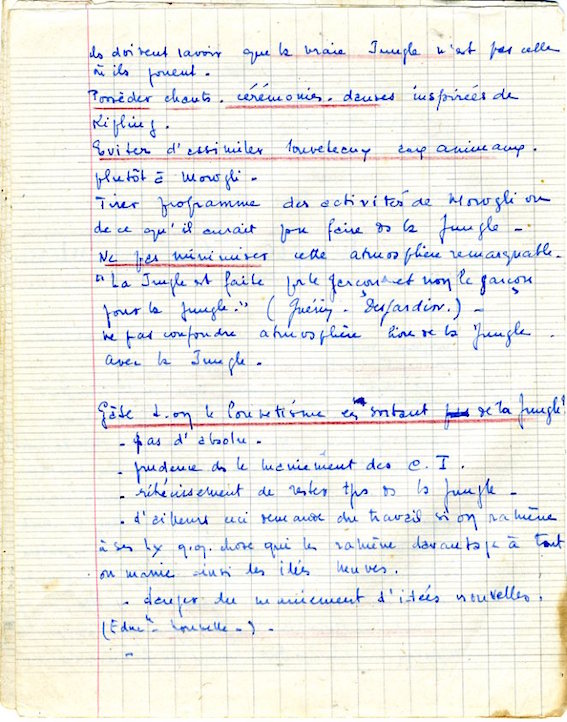 ils doivent savoir que la vraie Jungle n'est pas celle
où ils jouent.
Posséder chants. cérémonies. danses inspirées de
Kipling.
Eviter d'assimiler louveteaux aux animaux.
plutôt à Mowgli.
Tirer programme des activités de Mowgli ou
de ce qu'il aurait pu faire ds la Jungle -
Ne pas minimiser cette atmosphère remarquable.
"La Jungle est faite pr le garçon et non le garçon
pour la Jungle." ( Guérin - Desjardins.) -
ne pas confondre atmosphère livre de la Jungle
avec la Jungle.
Gâte-t-on le Louvetisme en sortant de la Jungle ?
- pas d'absolu -
- prudence ds le maniement des C.I.
- rétrécissement de rester tps ds la Jungle -
- d'ailleurs ceci demande du travail si on ramène
à ses Lx q.q. chose qui les ramène davantage à tout
on manie ainsi des idées neuves.
- danger du maniement d'idées nouvelles.
( nouvelle - ) -
-